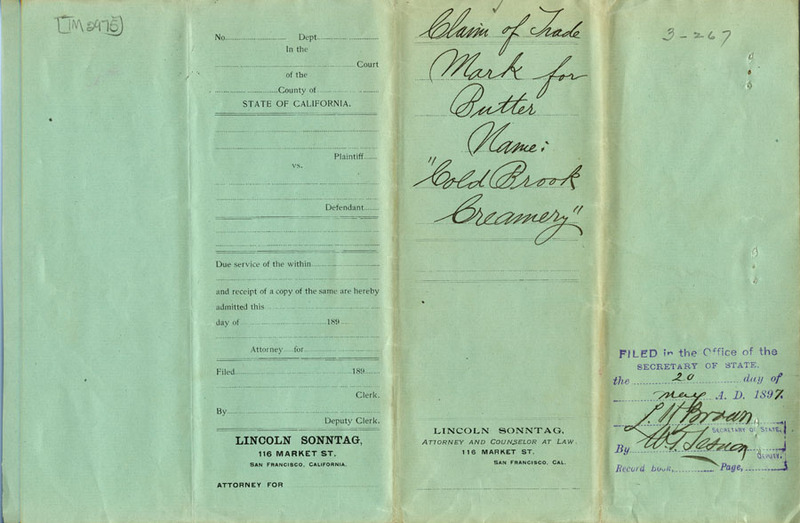 [TM 2975]
No. Dept.
In the
Court
of the
County of
STATE OF CALIFORNIA.
Plaintiff
vs.
Defendant
Due service of the within
and receipt of a copy of the same are hereby
admitted this
day of 189
Attorney for
Filed 189
Clerk.
By
Deputy Clerk.
LINCOLN SONNTAG,
116 MARKET ST.
SAN FRANCISCO, CALIFORNIA.
ATTORNEY FOR
Claim of Trade
Mark for
Butter
Name:
"Cold Brook
Creamery"
LINCOLN SONNTAG,
ATTORNEY AND COUNSELOR AT LAW.
116 MARKET ST.
SAN FRANCISCO, CAL.
3-267
FILED in the Office of the
SECRETARY OF STATE,
the 20 day of
May A. D. 1897.
L. H. Brown
SECRETARY OF STATE.
By
DEPUTY.
Record book, Page,